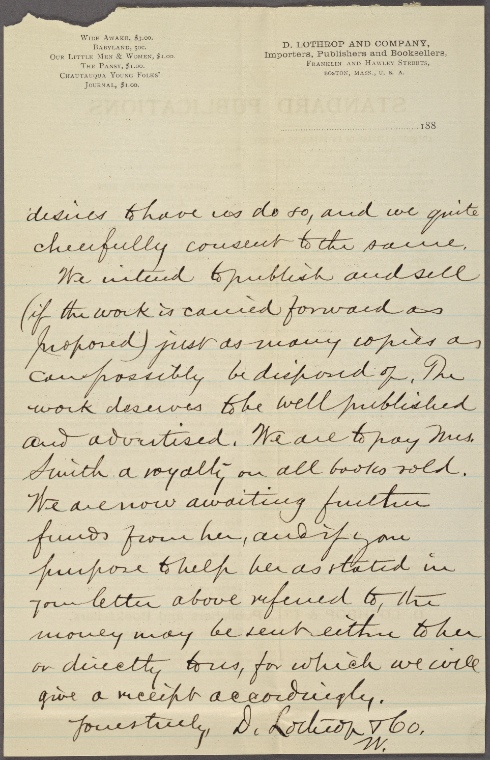 WIDE AWAKE, $3.00.
BABYLAND, 50c.
OUR LITTLE MEN & WOMEN, $1.00.
THE PANSY, $1.00.
CHAUTAUQUA YOUNG FOLKS'
JOURNAL, $1.00.
D. LOTHROP AND COMPANY,
Importers, Publishers and Booksellers,
FRANKLIN AND HAWLEY STREETS,
BOSTON, MASS., U. S. A.
188
STANDARD PUBLICATIONS
desires to have us do so, and we quite
cheerfully consent to the same.
We intend to publish and sell
(if the work is carried forward as
proposed) just as many copies as
can possibly be disposed of. The
work deserves to be well published
and advertised. We are to pay Mrs.
Smith a royalty on all books sold.
We are now awaiting further
funds from her, and if you
purpose to help her as stated in
your letter above referred to, the
money may be sent either to her
or directly to us, for which we will
give a receipt accordingly.
Yours truly, D. Lothrop & Co.
W.